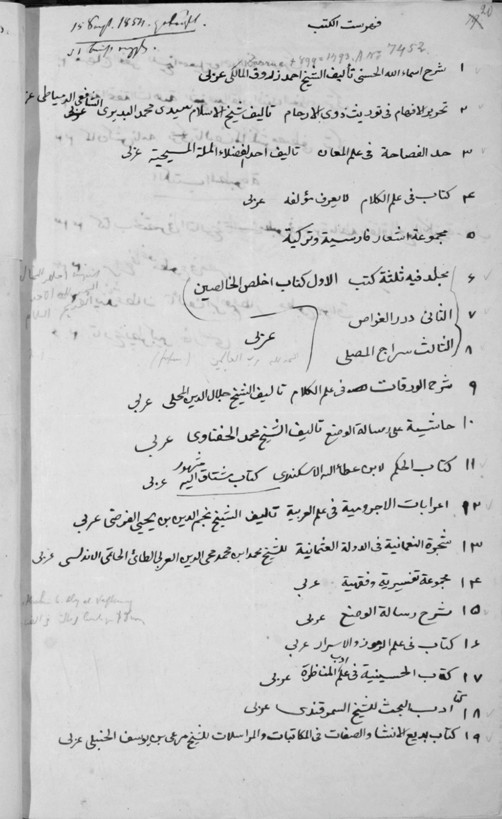 20
15 Sept. 1851.
7452
فهرست الكتب
١ شرح اسماء الله الحسنى تأليف الشيخ احمد زروق المالكى عربى
٢ تحرير الافهام فى توريث ذوى الارحام تاليف شيخ الاسلام محمد البديرى الشافعى الدمياطى عربى
٣ حد الفصاحة فى علم المعان تاليف احد الفضلاء الملة المسيحية عربى
٤ كتاب فى علم الكلام لا يعرف مؤلفه عربى
٥ مجموعة اشعار فارسية وتركية
٦ مجلد فيه ثلثة كتب الاول كتاب اخلص الخالصين
٧ الثانى درر الغواص
عربى
٨ الثالث سراج المصلى
٩ شرح الورقات فى علم الكلام تاليف الشيخ جلال الدين المحلى عربى
١٠ حاشية على رسالة الوضع تاليف الشيخ محمد الحفناوى عربى
١١ كتاب الحكم لابن عطاء الله الاسكندرى كتاب مشهور شتاق اليه عربى
١٢ اعرابات الاجرومية فى علم العربية تاليف الشيخ نجم الدين بن يحيى الفرضى عربى
١٣ شجرة النعمانية فى الدولة العثمانية للشيخ محمد ابن محمد محى الدين العربى الطائى الحاتمى الاندلسى عربى
١٤ مجموعة تفسيرية وفقهية عربى
١٥ شرح رسالة الوضع عربى
١٦ كتاب فى علم الرموز والاسرار عربى
١٧ كتاب الحسينية فى علم ادب المناظرة عربى
١٨ كتاب ادب البحث للشيخ السمرقندى عربى
١٩ كتاب بديع الانشا والصفات فى المكاتبات والمراسلات للشيخ مرعى بن يوسف الحنبلى عربى